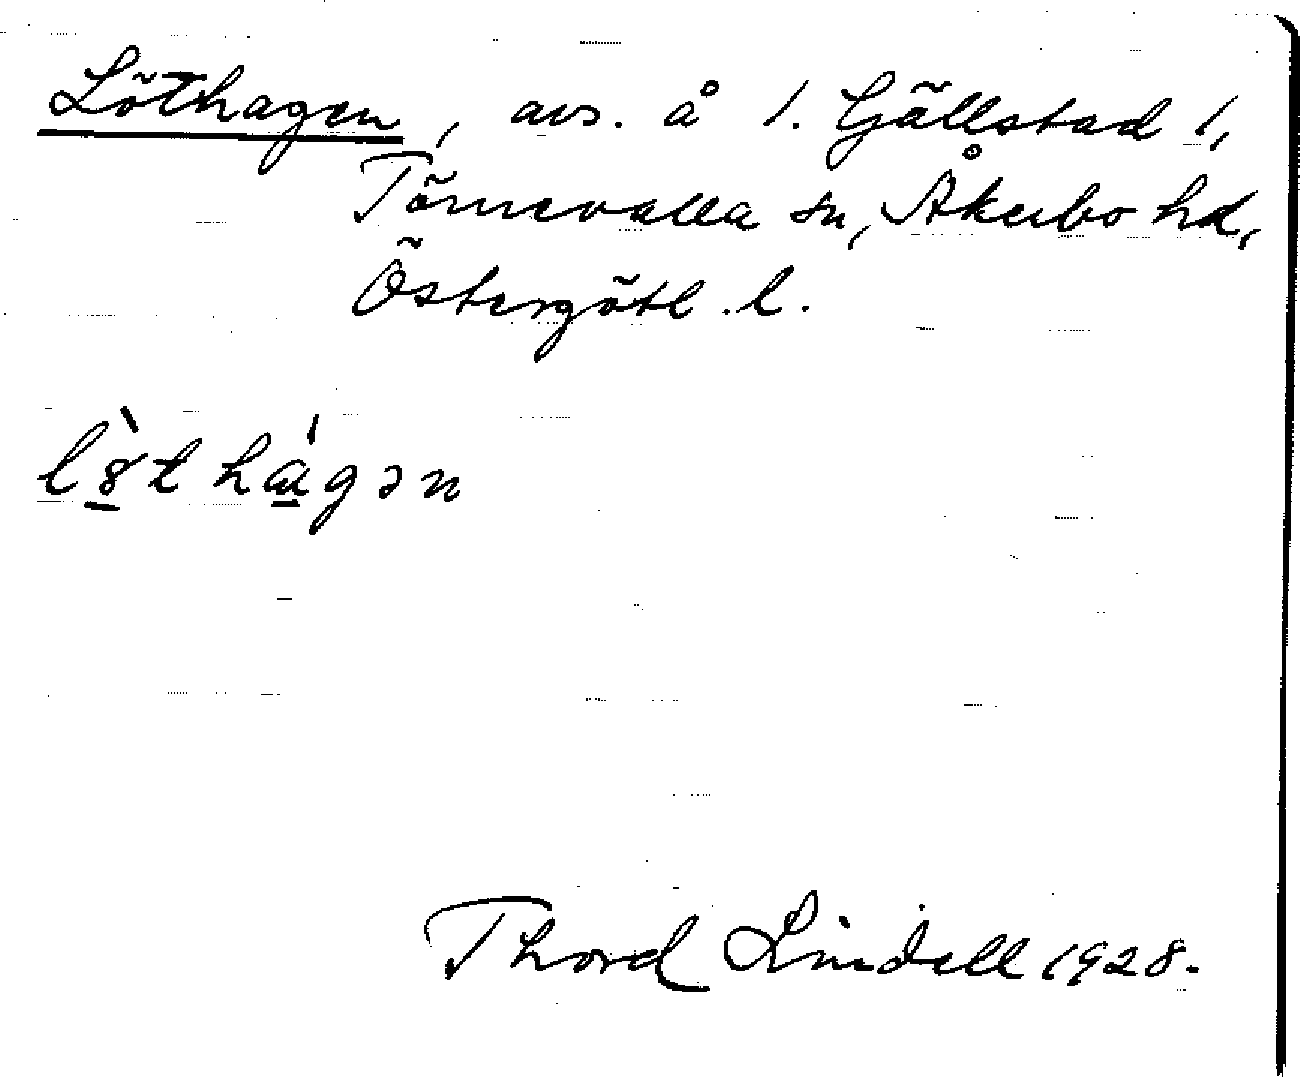 Löthagen, avs. å 1. Gällstad 1,
Törnevalla sn, Åkerbo hd,
Östergötl. l.
lö̀thágən
Thord Lindell 1928.